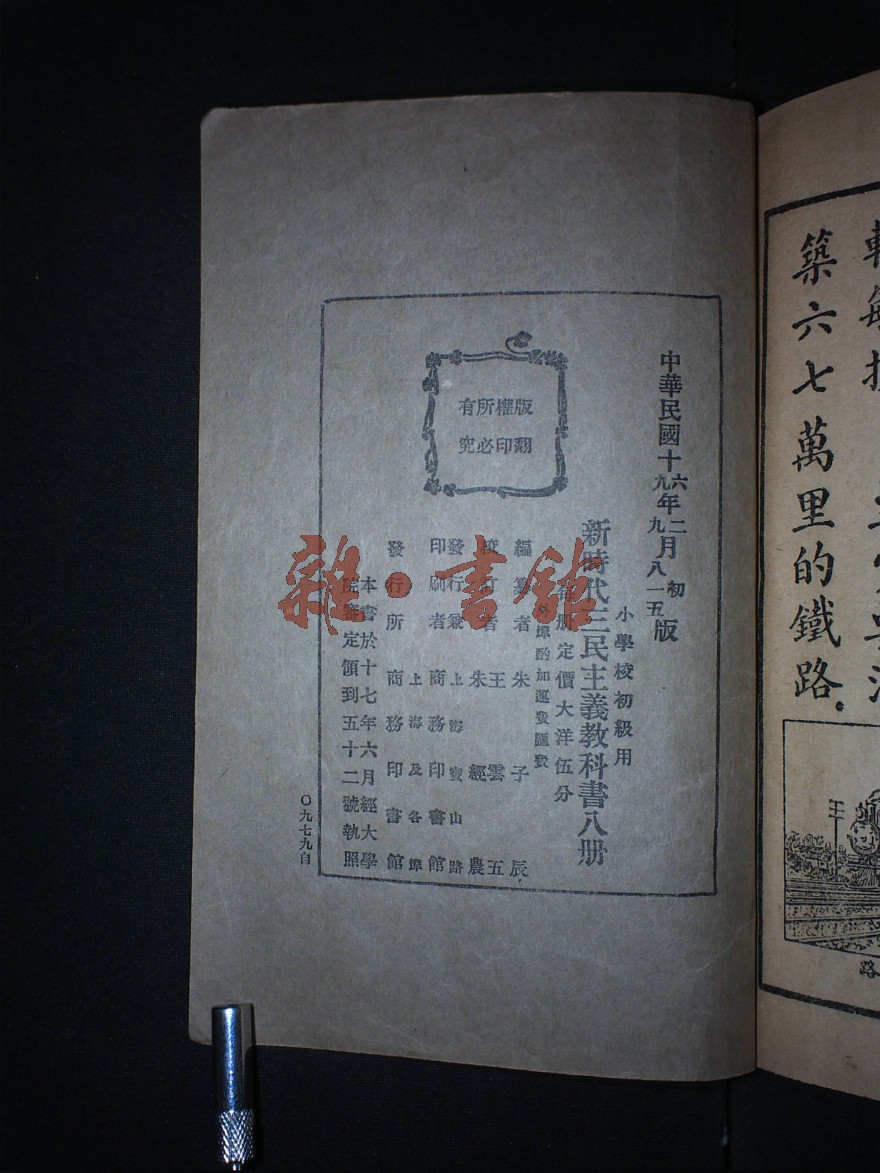 築六七萬里的鐵路.
路
中華民國十六九年二九月初八一五版
小學校初級用
新時代三民主義教科書八册
每册定價大洋伍分
外埠酌加運費匯費
編纂者 朱子辰
校訂者 王雲五
朱經農
發行兼 上海寶山路
印刷者 商務印書館
上海及各埠
發行所 商務印書館
本書於十七年六月經大學
院審定領到五十二號執照
版權所有
翻印必究
〇九七九自
雜·書館